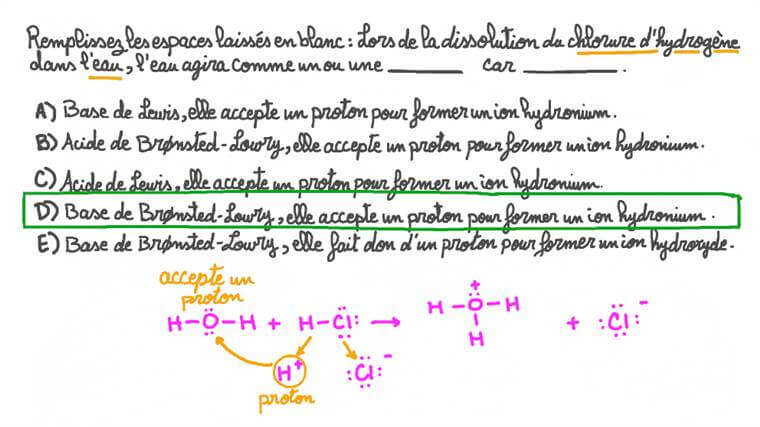 Remplissez les espaces laissés en blanc : Lors de la dissolution du chlorure d'hydrogène
dans l'eau, l'eau agira comme un ou une ________ car __________ .
A) Base de Lewis, elle accepte un proton pour former un ion hydronium.
B) Acide de Brønsted-Lowry, elle accepte un proton pour former un ion hydronium.
C) Acide de Lewis, elle accepte un proton pour former un ion hydronium.
D) Base de Brønsted-Lowry, elle accepte un proton pour former un ion hydronium.
E) Base de Brønsted-Lowry, elle fait don d'un proton pour former un ion hydroxyde.
accepte un
proton
H-O-H + H-Cl: → H-O-H + :Cl:-
+
H
H+ :Cl:-
proton